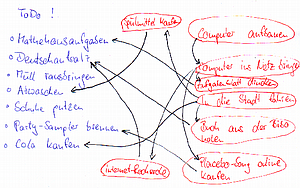 ToDo !
Spülmittel kaufen
Computer aufbauen
Mathehausaufgaben
Deutschaufsatz
Müll rausbringen
Abwaschen
Schuhe putzen
Party-Sampler brennen
Cola kaufen
Computer ins Netz bringen
Aufgabenblatt drucken
In die Stadt fahren
Buch aus der Bibo
holen
Placebo-Song online
kaufen
Internet-Recherche